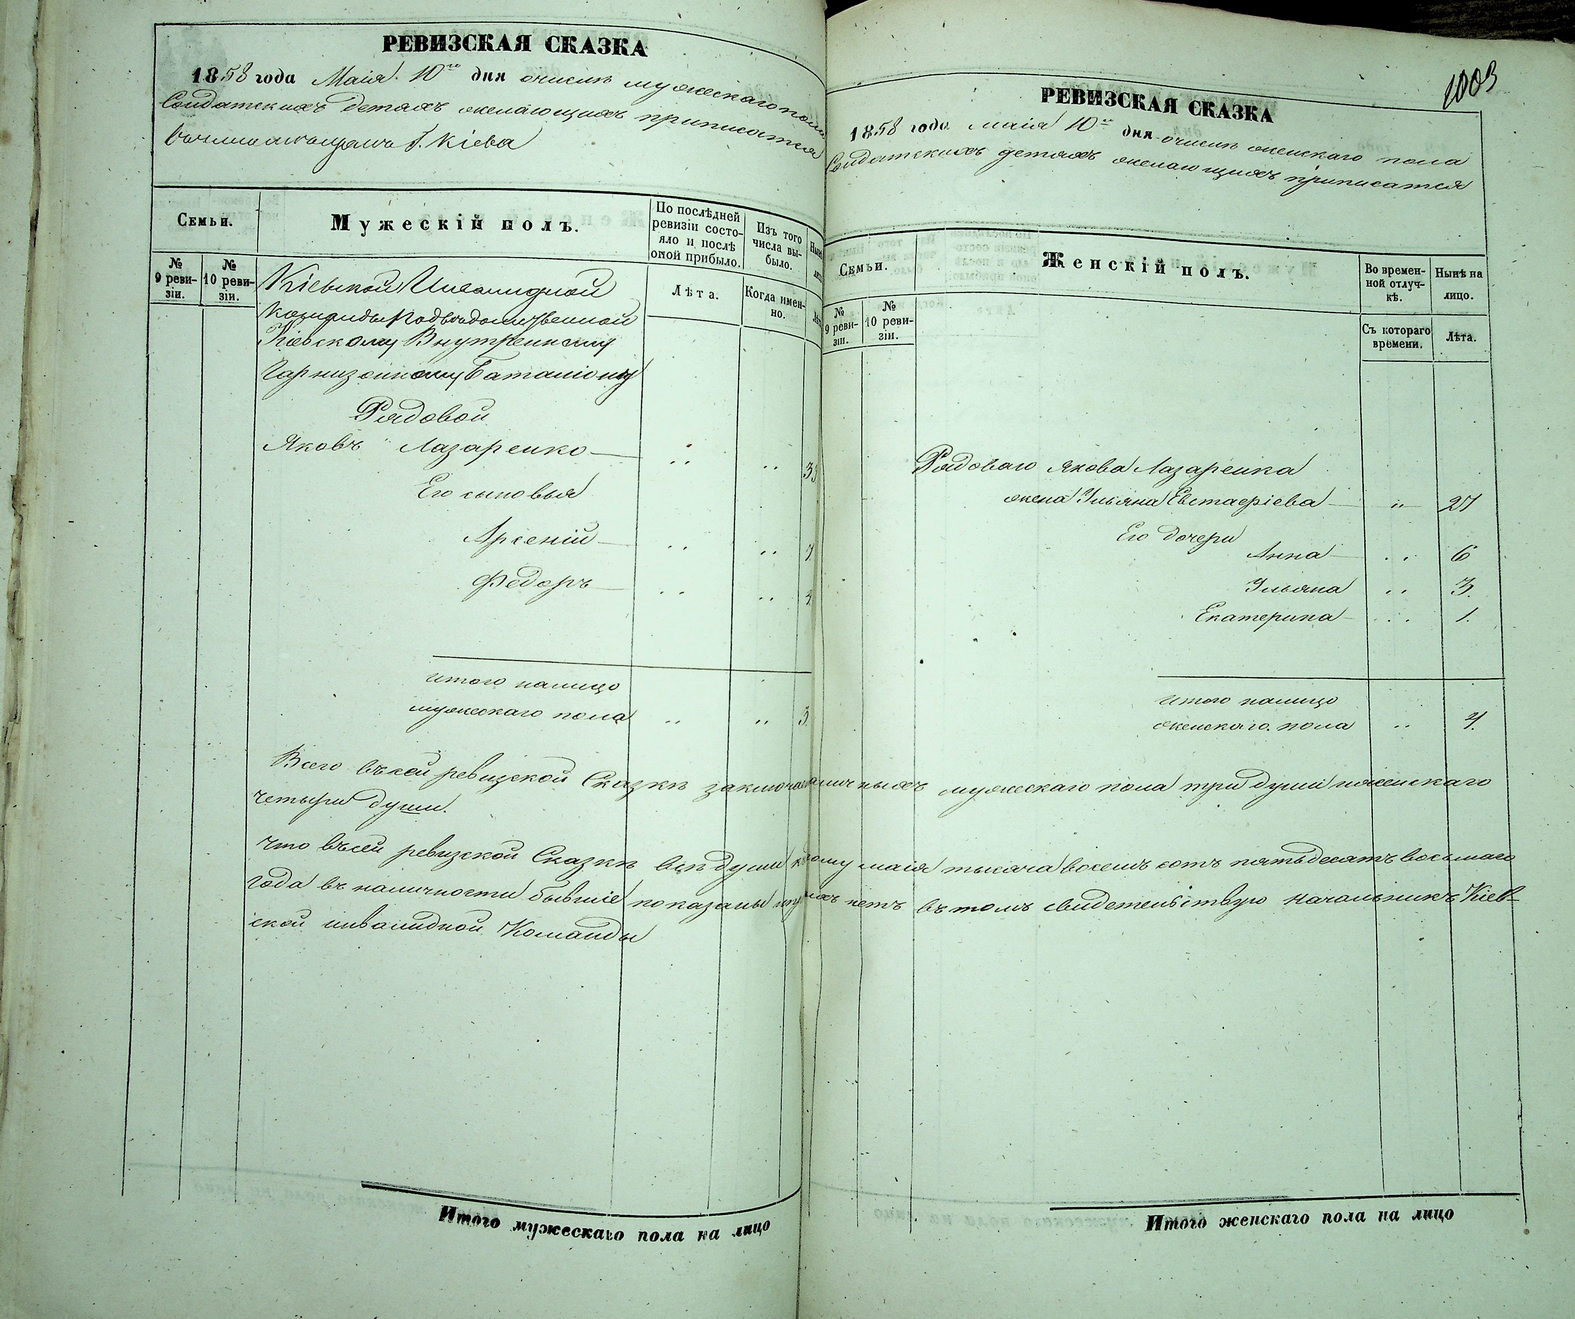 РЕВИЗСКАЯ СКАЗКА
1858 года Маія 10го дня о числѣ мужескаго пола
Солдатскихъ детяхъ желающихъ приписатся
г. Кіева
Семьи.
Мужескій полъ.
По послѣдней ревизіи состояло и послѣ оной прибыло.
Изъ того числа выбыло.
№ 9 ревизіи.
№ 10 ревизіи.
Лѣта.
Когда именно.
Кіевской Инвалидной
Команды Подведомственной
Кіевскому Внутреннему
Гарнизонному Баталіону
Рядовой
Яковъ Лазаренко
Его сыновья
Арсеній
Федоръ
итого налицо
мужескаго пола " " 3
Итого мужескаго пола на лицо
1003
РЕВИЗСКАЯ СКАЗКА
1858 года маія 10го дня о числѣ женскаго пола
Солдатскихъ детяхъ желающихъ приписатся
Семьи.
Женскій полъ.
Во временной отлучкѣ.
Нынѣ на лицо.
№ 9 ревизіи.
№ 10 ревизіи.
Съ котораго времени.
Лѣта.
Рядоваго Якова Лазаренка
жена Ульяна Евстафіева " 27
Его дочери
Анна " 6
Ульяна " 3.
Екатерина " 1.
итого налицо
женскаго пола " 4.
Всего въ сей ревизской Сказкѣ наличныхъ мужескаго пола три души и женскаго
четыри души.
Что въ сей ревизской Сказкѣ всѣ души к 10му маія тысяча восемь сотъ пятьдесятъ восьмаго
года въ наличности бывшіе показаны нетъ въ томъ свидетельствую Начальникъ Кіев-
ской инвалидной Команды
Итого женскаго пола на лицо